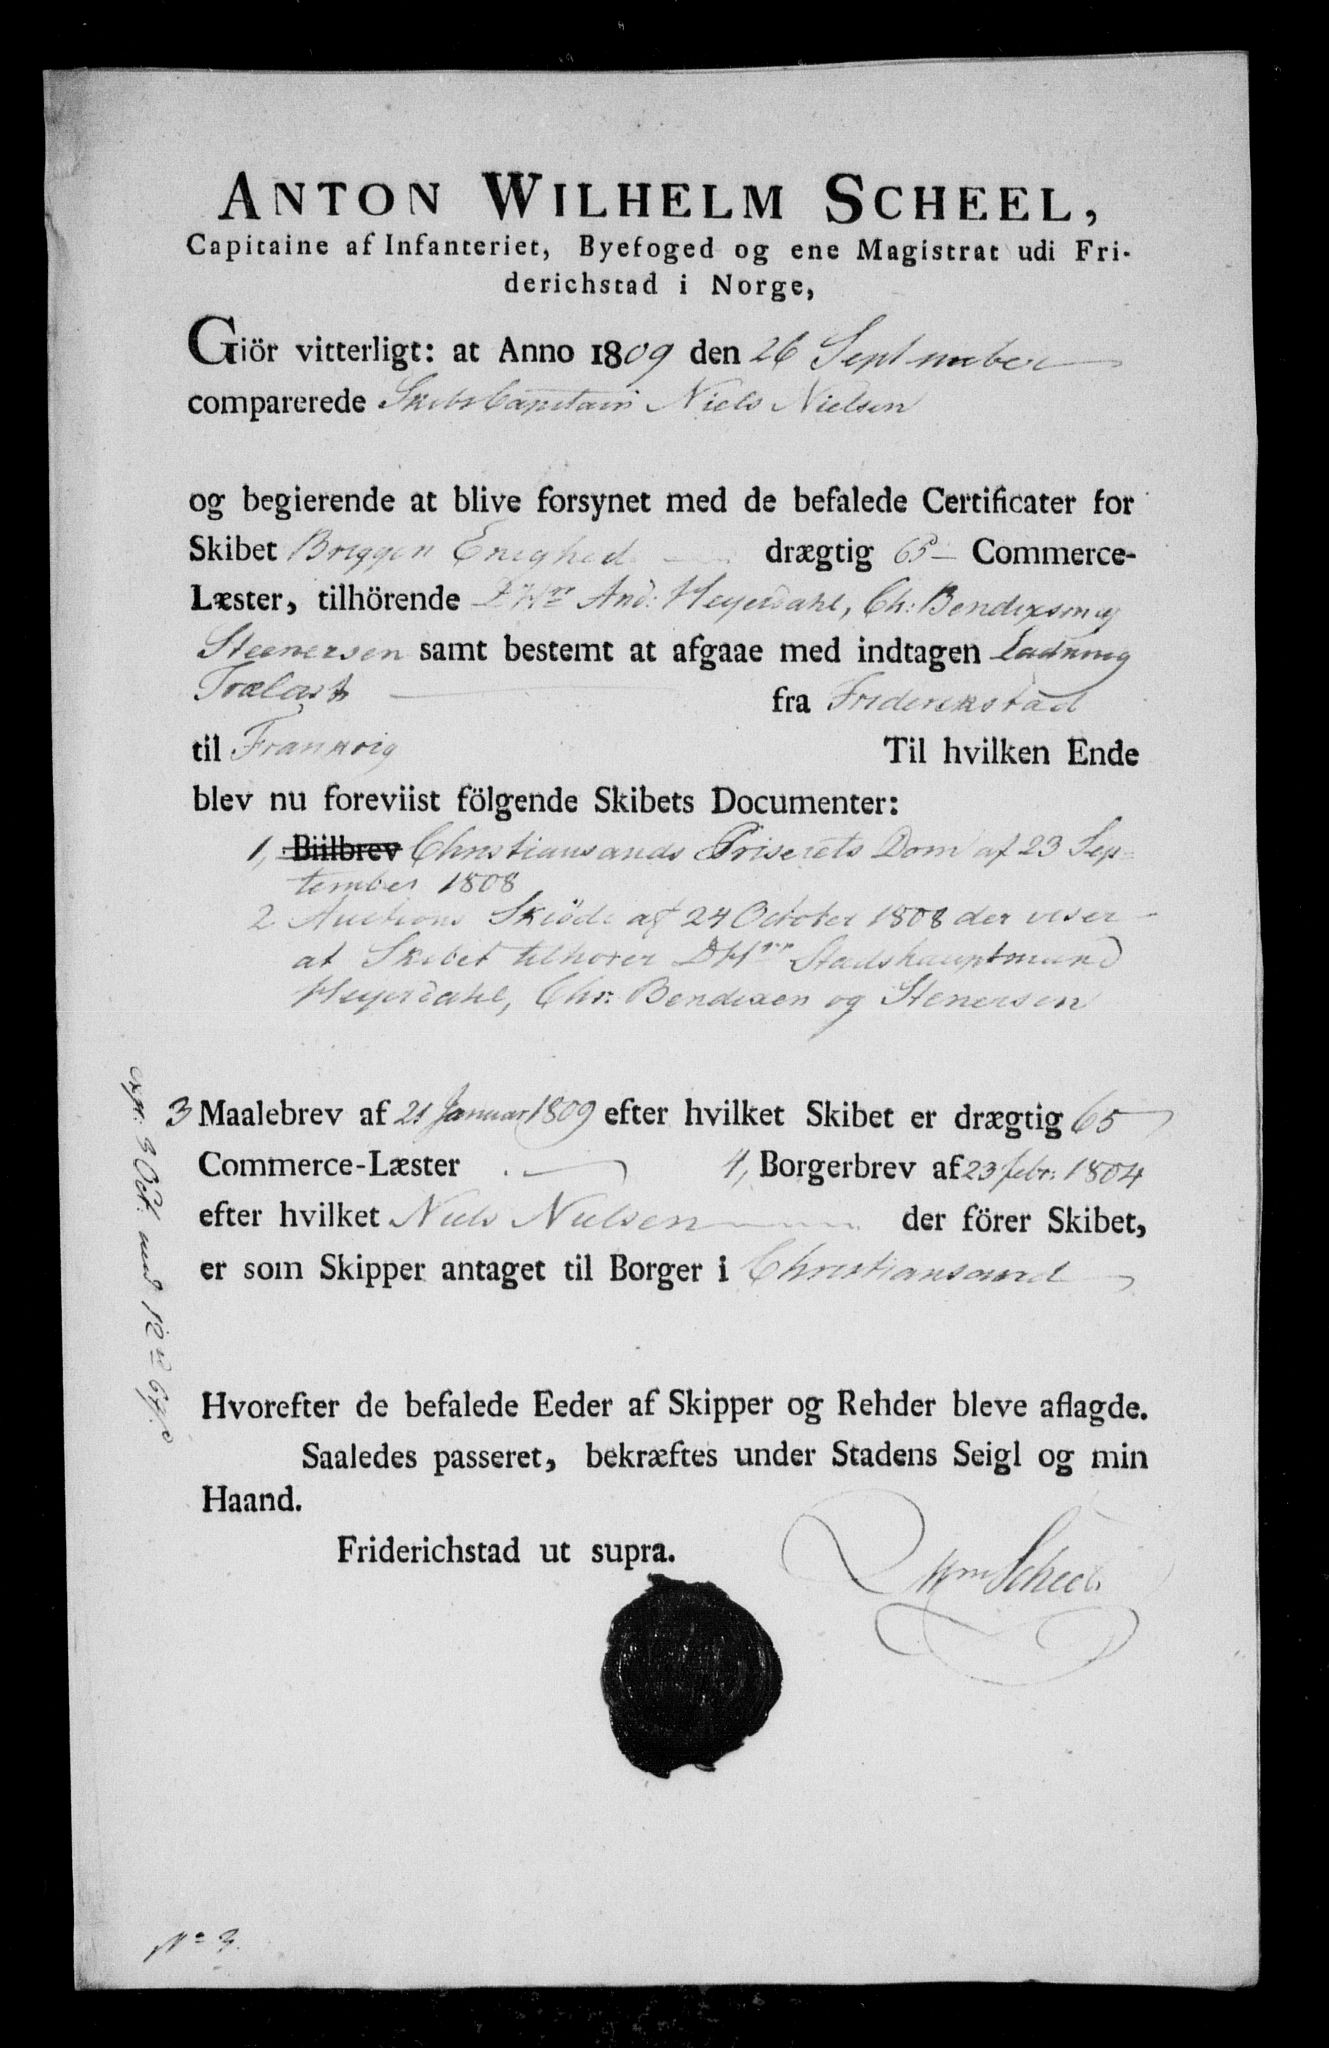 ANTON WILHELM SCHEEL,
Capitaine af Infanteriet, Byefoged og ene Magistrat udi Fri-
derichstad i Norge,
Giör vitterligt: at Anno 1809 den 26 September
comparerede Skibs Capitain Niels Nielsen
og begierende at blive forsynet med de befalede Certificater for
Skibet Briggen Enighed drægtig 65 Commerce-
Læster, tilhörende DHrr And: Heyerdahl, Ch: Bendixen og
Steenersen samt bestemt at afgaae med indtagen Ladning
Trælast fra Friderikstad
til Frankrig Til hvilken Ende
blev nu foreviist fölgende Skibets Documenter:
1, Biilbrev Christiansands Priserets Dom af 23 Sep-
tember 1808
2 Auctions Skiöde af 24 October 1808 der viser
at Skibet tilhorer DHrr Stadshauptmand
Heyerdahl, Chr: Bendixen og Stenersen
3 Maalebrev af 21 Januar 1809 efter hvilket Skibet er drægtig 65
Commerce-Læster 4, Borgerbrev af 23 febr: 1804
efter hvilket Niels Nielsen der förer Skibet,
er som Skipper antaget til Borger i Christiansand
Hvorefter de befalede Eeder af Skipper og Rehder bleve aflagde.
Saaledes passeret, bekræftes under Stadens Seigl og min
Haand.
Friderichstad ut supra.
Wm Scheel
exp: 3 Oct.
No 3.